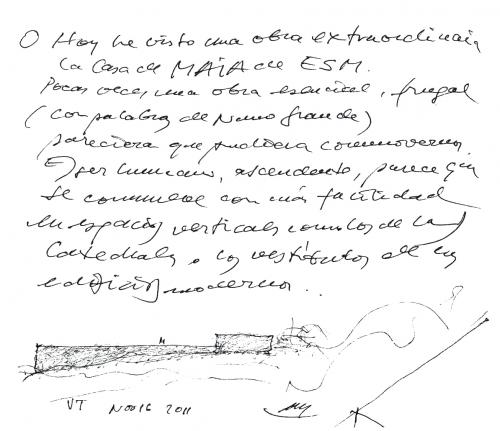 Hoy he visto una obra extraordinaria
la Casa de MAIA de ESM.
Pocas veces, una obra esencial, frugal
(con palabras de Nuno Grande)
pareciera que pudiera conmovernos.
El ser humano, ascendente, parece que
se conmueve con más facilidad
en espacios verticales como los de las
Catedrales o los vestíbulos de un
edificio moderno.
VT NOV16 2011